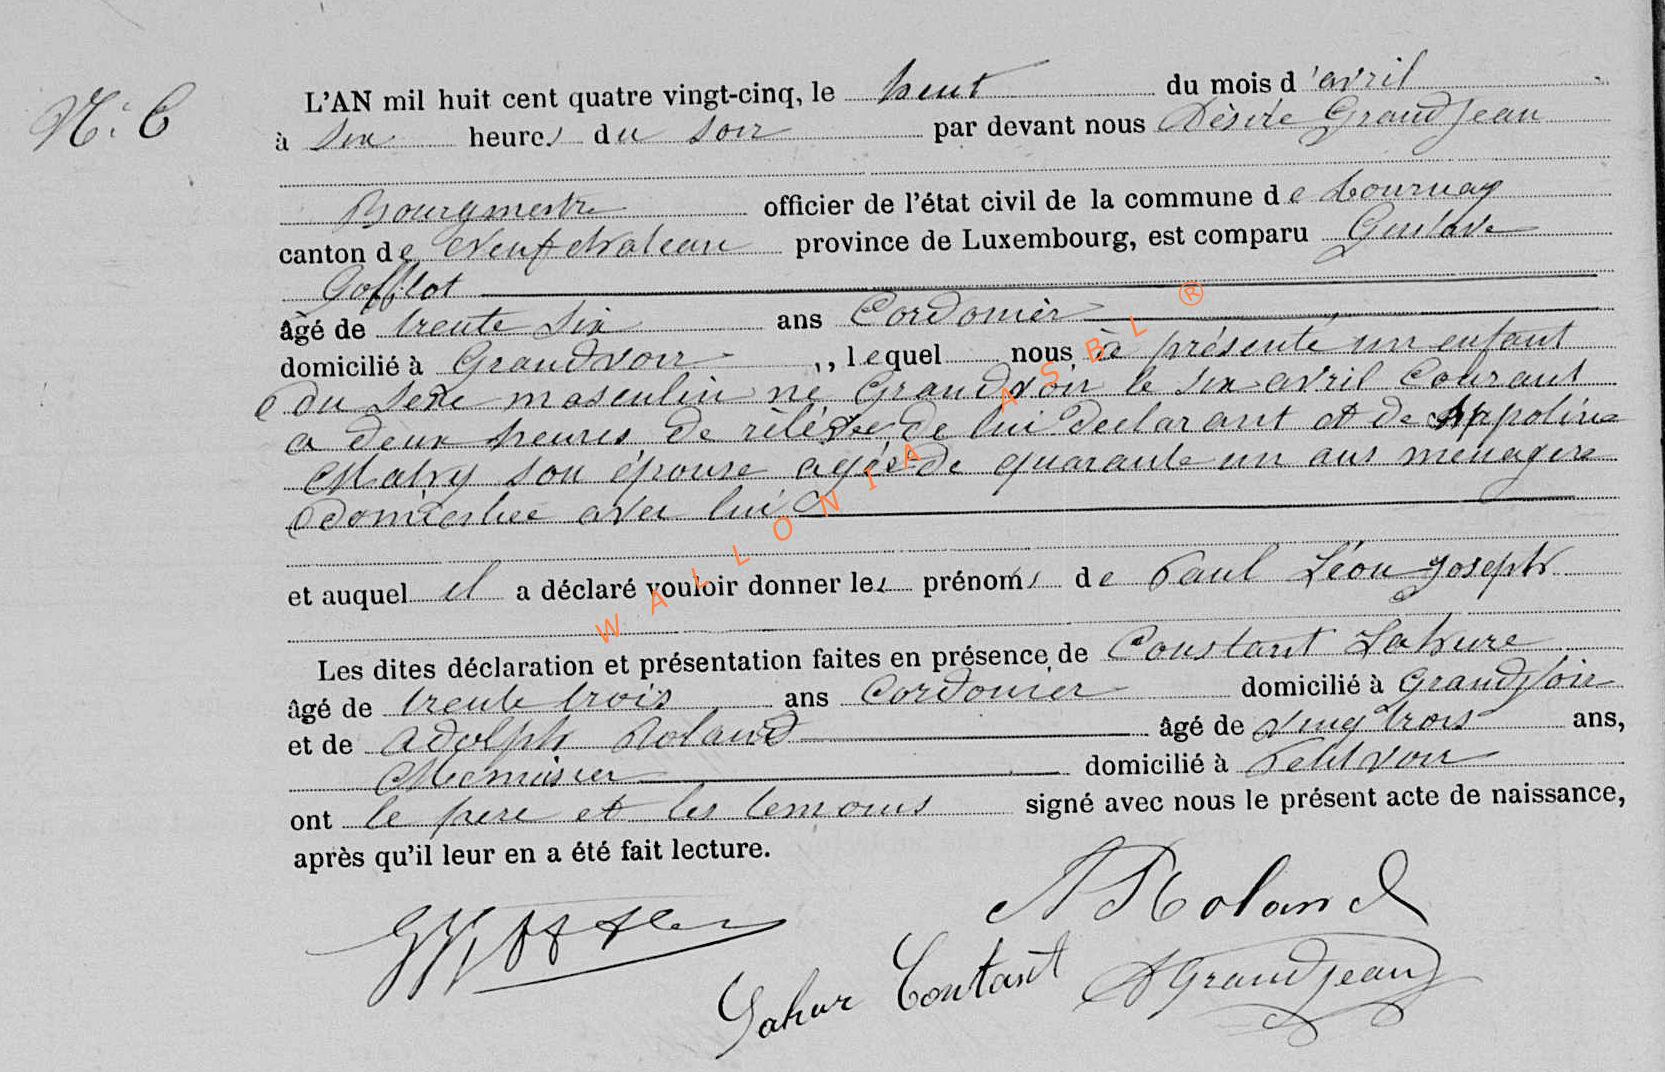 N° 6
L'AN mil huit cent quatre vingt-cinq, le huit du mois d'avril
à six heures du soir par devant nous Désiré Grandjean
Bourgmestre officier de l'état civil de la commune de Tournay
canton de Neufchateau province de Luxembourg, est comparu Gustave
Goffilot
âgé de trente six ans Cordonier
domicilié à Grandvoir, lequel nous à présenté un enfant
du sexe masculin né Grandvoir le six avril Courant
a deux heures de rélévée de lui déclarant et de Appoline
Mahy son épouse agée de quarante un ans ménagère
domiciliée avec lui
et auquel il a déclaré vouloir donner les prénoms de Paul Léon Joseph
Les dites déclaration et présentation faites en présence de Constant Lahure
âgé de trente trois ans Cordonier domicilié à Grandvoir
et de Adolph Roland âgé de vingt trois ans,
Menuisier domicilié à Petitvoir
ont le père et les temoins signé avec nous le présent acte de naissance,
après qu'il leur en a été fait lecture.
A Roland
Lahur Contant D Grandjean
WALLONIA ASBL ®